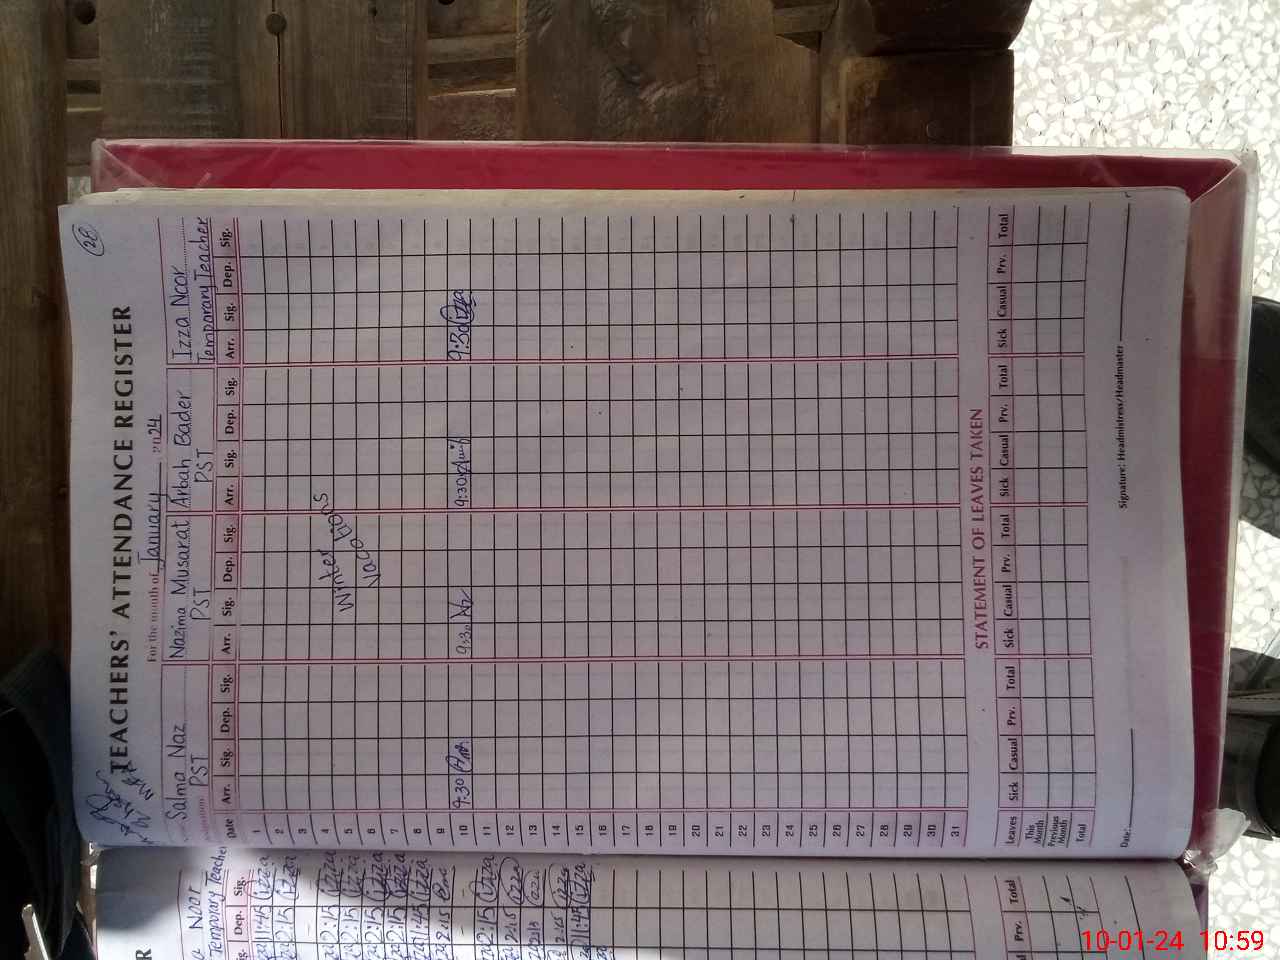 28
TEACHERS' ATTENDANCE REGISTER
For the month of January 2024
Salma Naz Nazima Musarat Arbah Bader Izza Noor
PST PST PST Temporary Teacher
Date Arr. Sig. Dep. Sig. Arr. Sig. Dep. Sig. Arr. Sig. Dep. Sig. Arr. Sig. Dep. Sig.
1
2
3
4
5
6
7
8
9
Winter
Vacations
10 9:30 9:30 9:30 9:30 Izza
11
12
13
14
15
16
17
18
19
20
21
22
23
24
25
26
27
28
29
30
31
STATEMENT OF LEAVES TAKEN
Leaves Sick Casual Prv. Total Sick Casual Prv. Total Sick Casual Prv. Total Sick Casual Prv. Total
This Month
Previous Month
Total
Date: Signature: Headmistress/Headmaster
R
Noor
Temporary Teacher
Sig. Dep. Sig.
11:45 Izza
2:15 Izza
2:15 Izza
2:15 Izza
2:15 Izza
2:15 Izza
11:45 Izza
2:15
2:15 Izza
2:15 Izza
2:15 Izza
11:45 Izza
Prv. Total
10-01-24 10:59